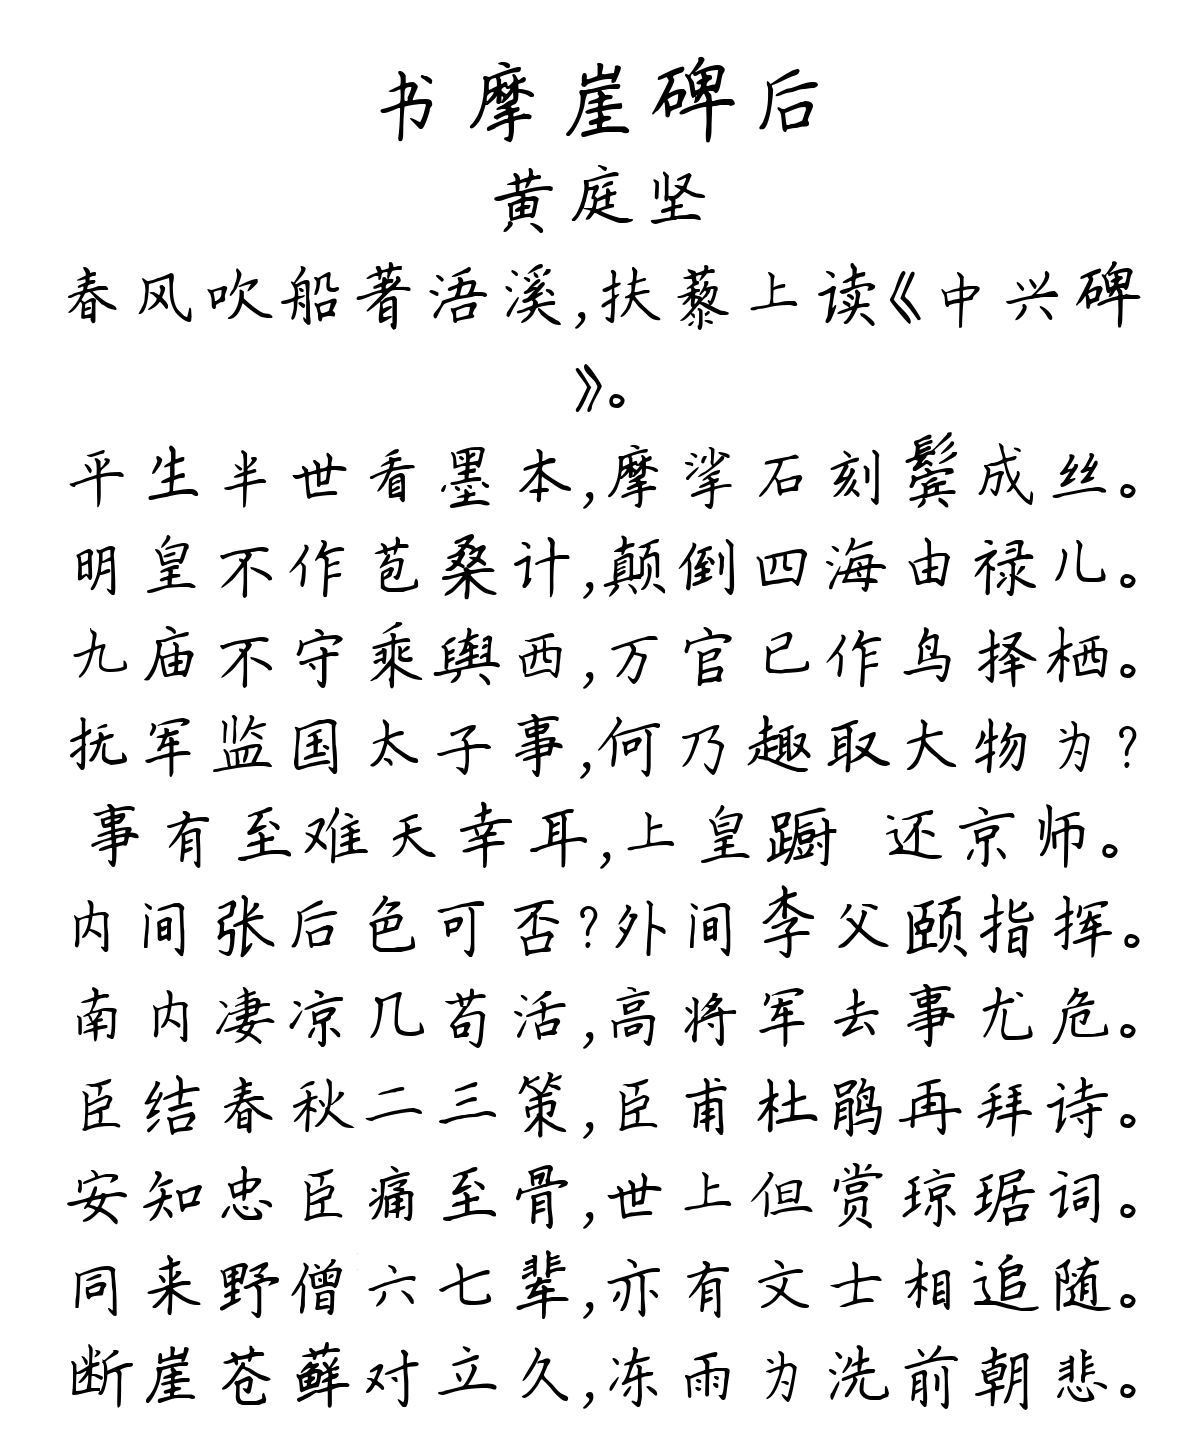 书摩崖碑后
黄庭坚
春风吹船著浯溪,扶藜上读《中兴碑
》。
平生半世看墨本,摩挲石刻鬓成丝。
明皇不作苞桑计,颠倒四海由禄儿。
九庙不守乘舆西,万官已作鸟择栖。
抚军监国太子事,何乃趣取大物为?
事有至难天幸耳,上皇蹰 还京师。
内间张后色可否?外间李父颐指挥。
南内凄凉几苟活,高将军去事尤危。
臣结春秋二三策,臣甫杜鹃再拜诗。
安知忠臣痛至骨,世上但赏琼琚词。
同来野僧六七辈,亦有文士相追随。
断崖苍藓对立久,冻雨为洗前朝悲。